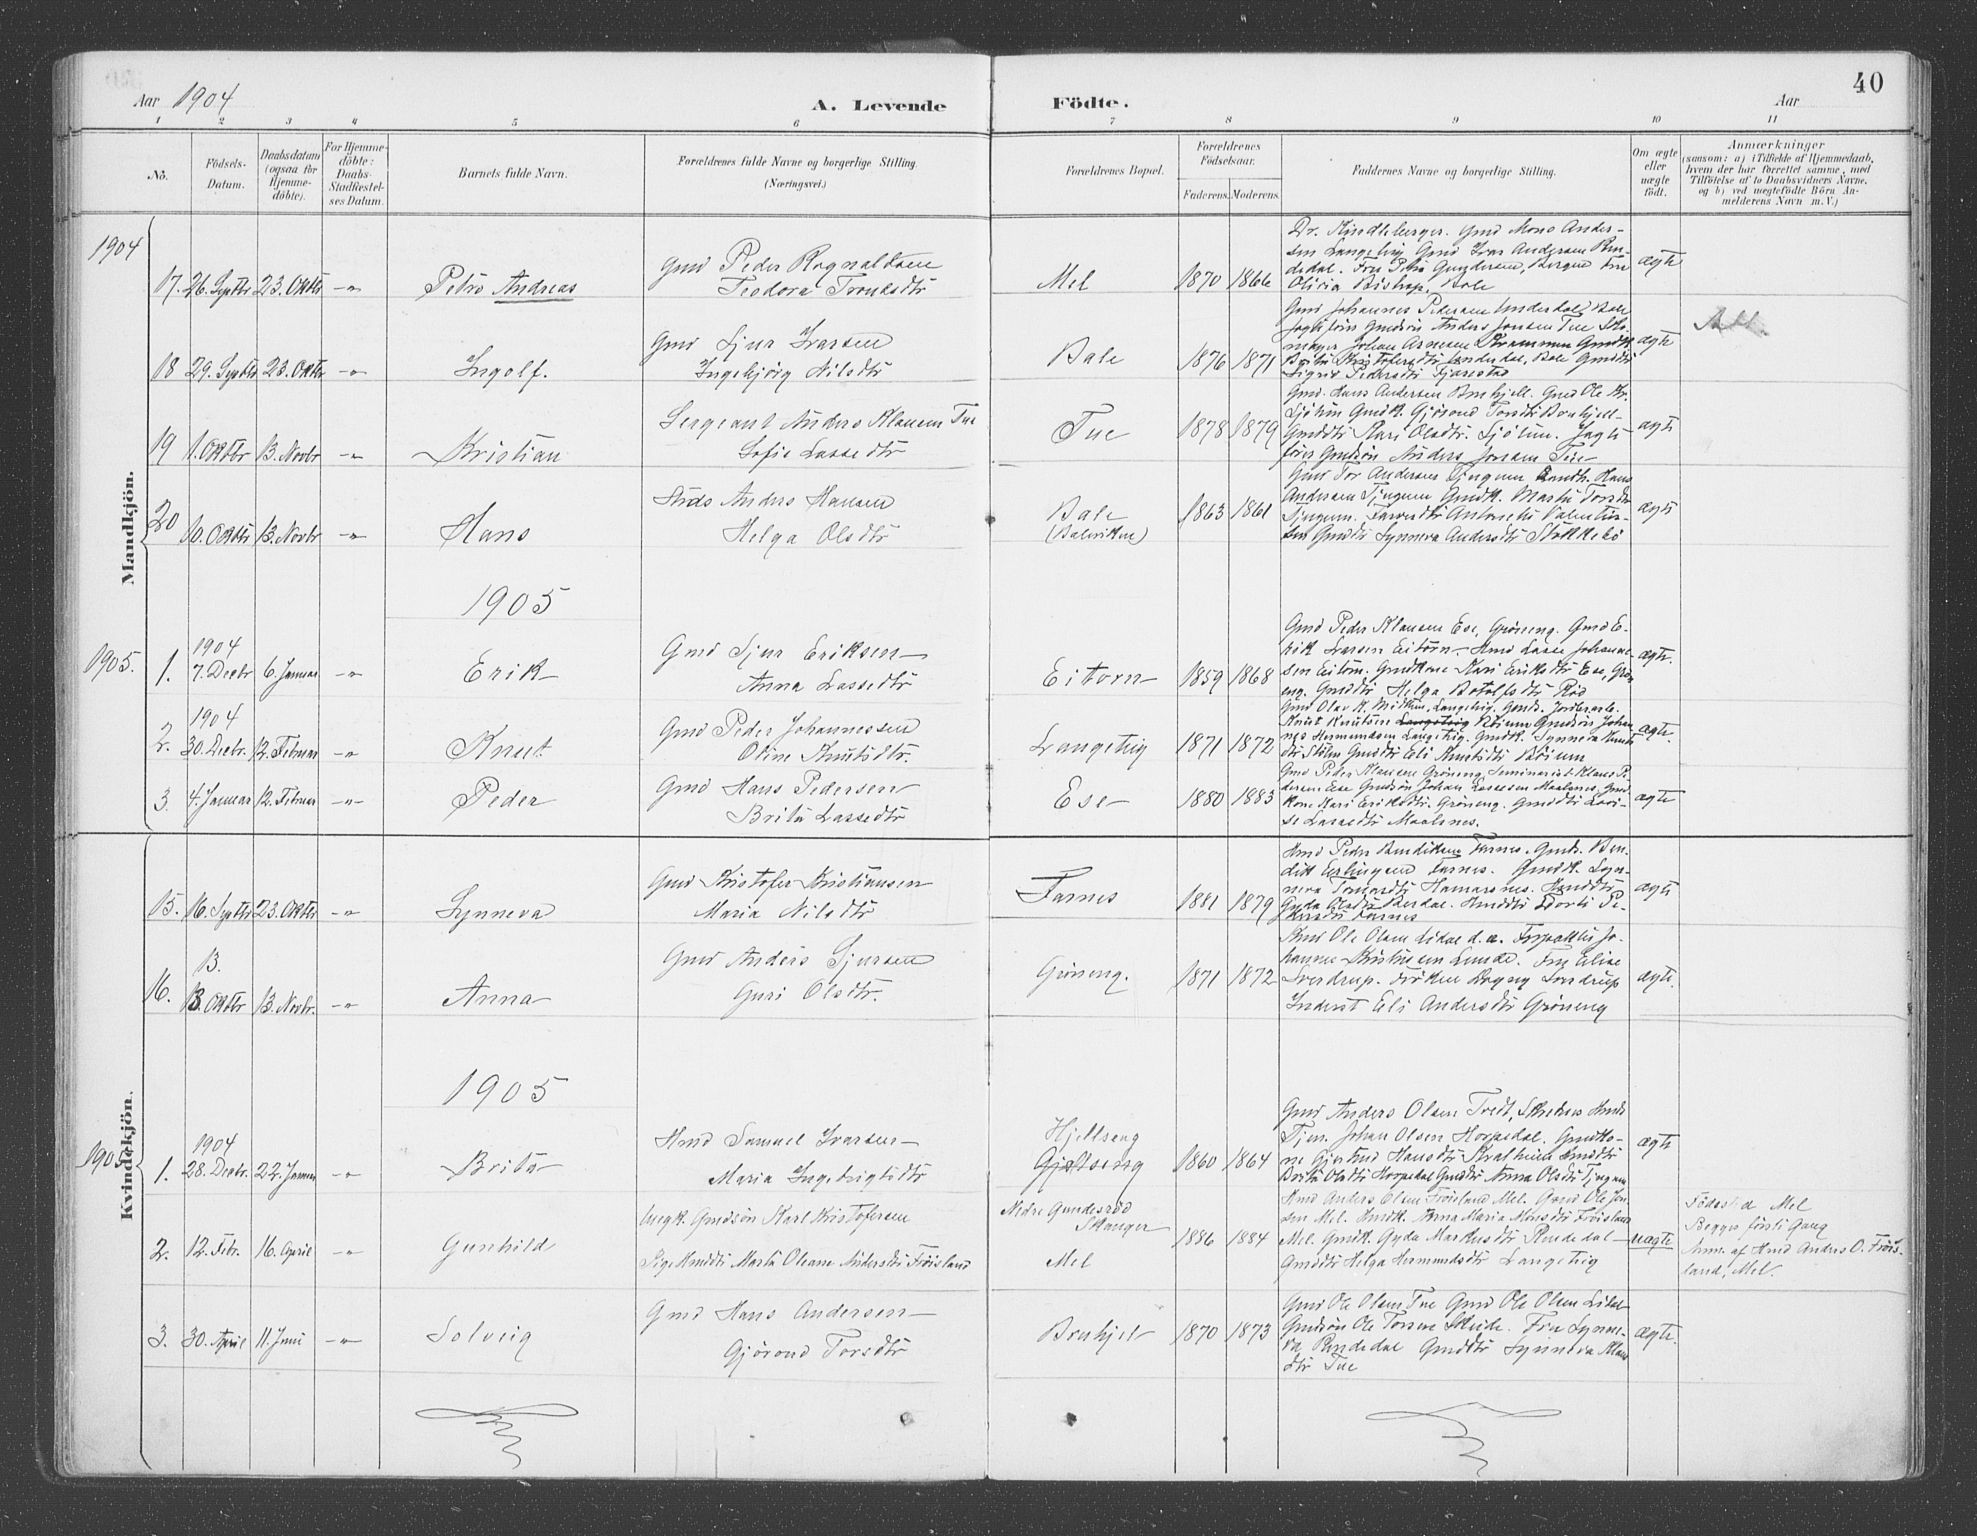 Aar 1904
A. Levende
Födte.
Aar
40
1 2 3 4 5 6 7 8 9 10 11
No.
Födsels-
Datum.
Daabsdatum
(ogsaa for
Hjemme-
döbte).
For Hjemme-
döbte:
Daabs-
Stadfæstel-
ses Datum.
Barnets fulde Navn.
Forældrenes fulde Navne og borgerlige Stilling.
(Næringsvei.)
Forældrenes Bopæl.
Forældrenes
Födselsaar.
Faderens. Moderens.
Faddernes Navne og borgerlige Stilling.
Om ægte
eller
uægte
födt.
Anmærkninger
(saasom: a) i Tilfælde af Hjemmedaab,
hvem der har forrettet samme, med
Tilföielse af to Daabsvidners Navne,
og b) ved uægtefödte Börn An-
melderens Navn m. V.)
Mandkjön.
1904
17. 26. Septbr 23. Oktbr -"- Petro Andreas
Gmd Peder Rognaldsen
Teodora
Mel 1870 1866
Dr. Kindleberger. Gmd Mons Ander-
sen Langeteig Gmd Ivar Andersen Rin-
dedal. Fru Petra Gundersen, Bergen Fru
Olivia Bistrup, Bale
ægte
18 29. Septbr 23. Oktbr -"- Ingolf.
Gmd Sjur Ivarsen
Ingebjörg Nilsdtr
Bale 1876 1871
Gmd Johannes Pedersen Underdal, Bale
Anders Jonsen Tue Sko-
mager Johan Arnesen
Brita Kristofersdtr Underdal, Bale Gmddtr
Sigrid Pedersdtr Fjærestad
ægte
19 1. Oktbr 13. Novbr -"- Kristian
Sergeant Anders Klausen Tue
Sofie Lassedtr
Tue 1878 1879
Gmd. Hans Andersen Brekjell. Gmd Ole Kr.
Sjötun Gmdk. Gjörond Torsdtr Brekjell-
Gmddtr Kari Olsdtr. Sjötun. Jagt-
förer Gmdsön Anders Jonsen Tue
ægte
20 10. Oktbr 13. Novbr -"- Hans
Strds Anders Hansen
Helga Olsdtr
Bale
(Balevikene)
1863 1861
Gmd Tor Andersen Tjugum Hans
Andersen Tjugum Gmdk. Marta Torsdtr
Tjugum. Antonette Valentin-
sen Gmddtr Synneva Andersdtr Stokkebö
ægte
1905
1905.
1. 1904
7. Decbr 6. Januar -"- Erik
Gmd Sjur Eriksen
Anna Lassedtr
Eitorn 1859 1868
Gmd Peder Klausen Ese, Gröneng. Gmd E-
rik Larsen Eitorn Hmd Lasse Johanne-
sen Eitorn. Gmdkone Kari Eriksdtr Ese, Grön-
eng. Gmddtr Helga Botolfsdtr Röd
ægte.
2. 1904
30. Decbr. 12. Februar -"- Knut
Gmd Peder Johannessen
Oline Knutsdtr.
Langeteig 1871 1872
Gmd Olav K. Midtun, Langeteig. Gmds. Jordarb.
Knut Knutsen Langeteig Röium Gmdsön Johan-
nes Hermundsen Langeteig. Gmdk. Synneva Knuts-
dtr Stölen Gmddtr Eli Knutsdtr Röium
ægte.
3. 4. Januar 12. Februar -"- Peder
Gmd Hans Pedersen
Brita Lassedtr
Ese 1880 1883
Gmd Peder Klausen Gröneng, Seminarist Klaus Pe-
dersen Ese Gmdsön Johan Lassesen Maalsnes, Gmd-
kone Kari Eriksdtr. Gröneng. Gmddtr Lovi-
se Lassedtr Maalsnes.
ægte
Kvindekjön.
15. 16. Septbr 23. Oktbr -"- Synneva
Gmd Kristofer Kristiansen
Maria Nilsdtr
Farnes 1881 1879
Hmd Peder Bendiksen Farnes. Gmds. Ben-
dik Erlingsen Farnes. Gmdk. Syn-
neva Hamarsnes. Hmddtr
Gyda Olsdtr Bersdal. Hmddtr Dorti Pe-
dersdtr Farnes
ægte
16. 13.
13. Oktbr 13. Novbr. -"- Anna
Gmd Anders Sjursen
Guri Olsdtr.
Gröneng. 1871 1872
Gmd Ole Olsen Lidal d.æ. Forpakter Jo-
hannes Kristensen Lunde. Fru Elise
Sverdrup. Fröken Dagny Sverdrup
Inderst Eli Andersdtr Gröneng
ægte.
1905
1905
1. 1904
28. Decbr. 22. Januar -"- Brita
Hmd Samuel Ivarsen
Maria Ingebrigtsdtr
Hjellseng
1860 1864
Gmd Anders Olsen Tredt, Hmds
Tjen. Johan Olsen Hospedal. Gmdko-
ne Gjertrud Hansdtr Hmddtr
Brita Olsdtr Hospedal Gmddtr Anna Olsdtr Tjugum
ægte
2. 12. Febr. 16. April -"- Gunhild
Ungk. Gmdsön Karl Kristofersen
Pige Hmddtr Marta Oleane Andersdtr Fröisland
Nedre Gundersrød
Skanger
Mel
1886 1884
Hmd Anders Olsen Fröisland Mel. Gmd Ole Jon-
sen Mel. Hmdk. Anna Maria Monsdtr Fröisland
Mel. Gmdk. Gyda Markusdtr Rindedal
Gmddtr Helga Hermundsdtr Langeteig
uægte
Födested Mel
Begges förste Gang
Anm. af Hmd Anders O. Fröis-
land, Mel.
3. 30. April 11. Juni -"- Solveig
Gmd Hans Andersen
Gjörond Torsdtr
Brekjel 1870 1873
Gmd Ole Olsen Tue Gmd Ole Olsen Lidal
Gmdsön Ole Torsen Skeide. Fru Synne-
va Rindedal Gmddtr Synneva Klaus-
dtr Tue
ægte.